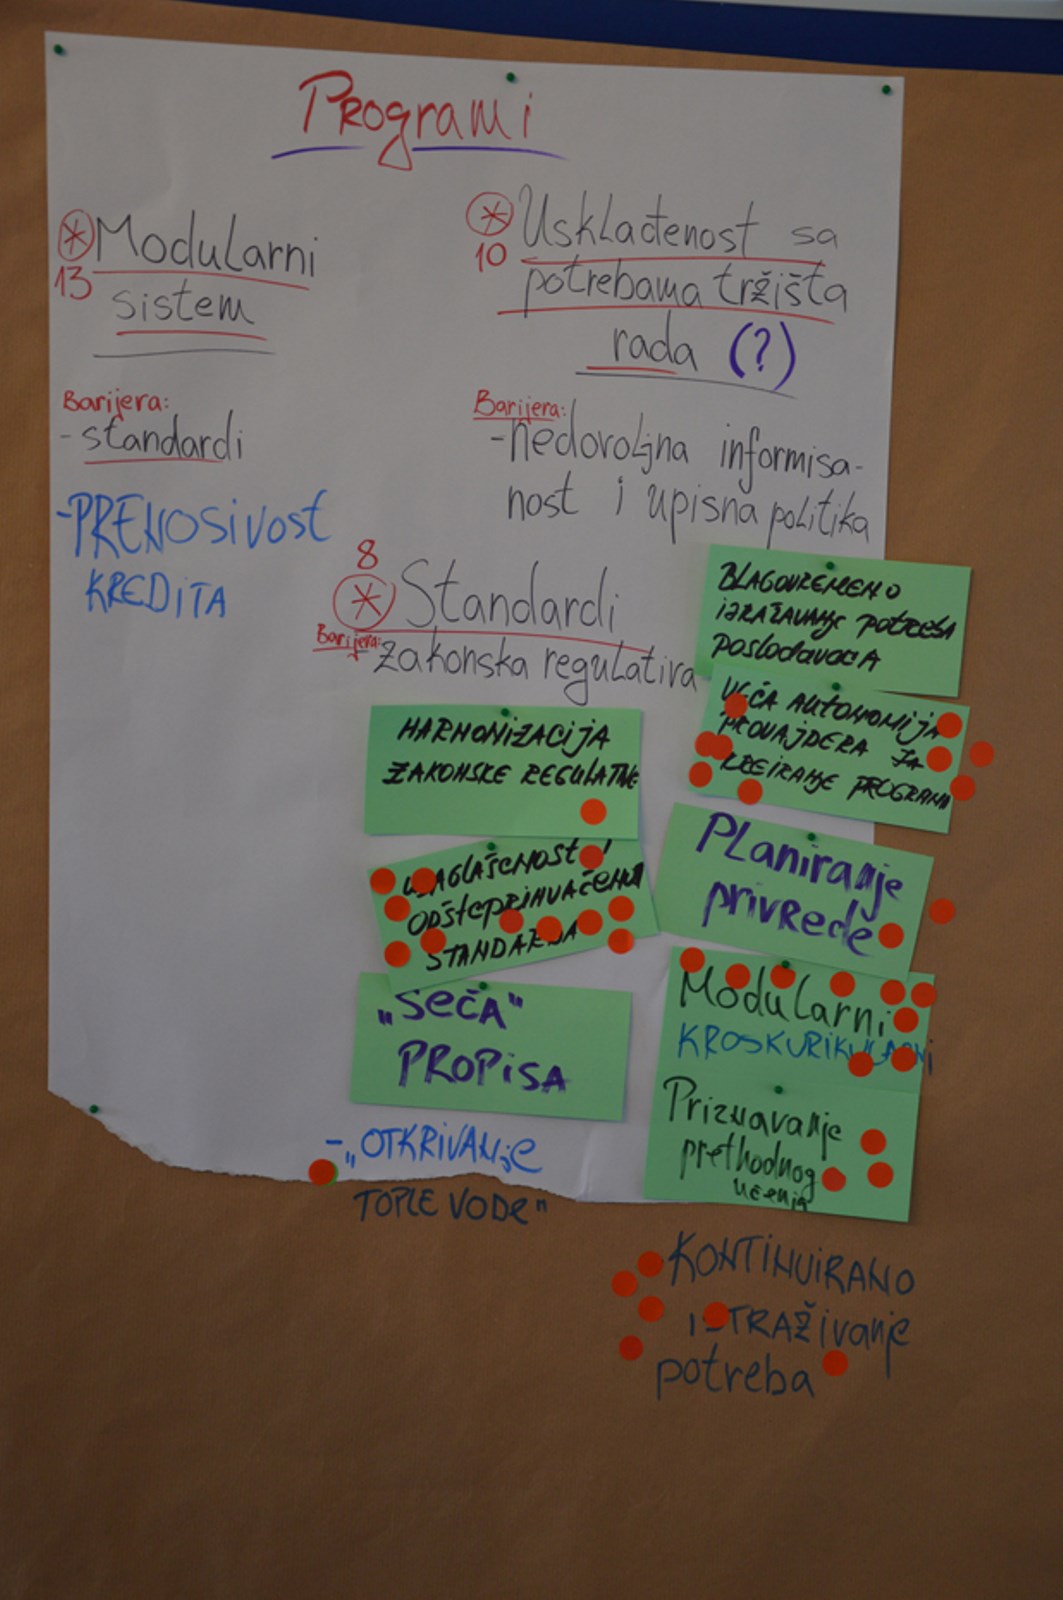 Programi
13 Modularni
sistem
Barijera:
- standardi
-PRENOSIVOST
KREDITA
10 Usklađenost sa
potrebama tržišta
rada (?)
Barijera:
- nedovoljna informisa-
nost i upisna politika
8
Standardi
Barijera:
- zakonska regulativa
BLAGOVREMENO
IZRAŽAVANJE POTREBA
POSLODAVACA
VEĆA AUTONOMIJA
PROVAJDERA ZA
KREIRANJE PROGRAMA
HARMONIZACIJA
ZAKONSKE REGULATIVE
USAGLAŠENOST I
OPŠTEPRIHVAĆENOST
STANDARDA
PLaniranje
privrede
„SEČA"
PROPISA
Modularni
KROSKURIKULARNI
Priznavanje
prethodnog
učenja
- „OTKRIVANJE
TOPLE VODE"
KONTINUIRANO
ISTRAŽivanje
potreba